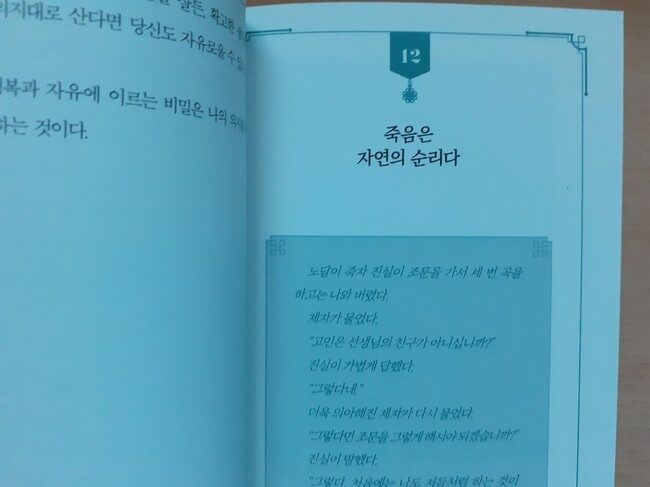 살든, 확고한
의지대로 산다면 당신도 자유로울 수 있
행복과 자유에 이르는 비밀은 나의 의지를
하는 것이다.
12
죽음은
자연의 순리다
노담이 죽자 진실이 조문을 가서 세 번 곡을
하고는 나와 버렸다.
제자가 물었다.
"고인은 선생님의 친구가 아니십니까?"
진실이 가볍게 답했다.
"그렇다네."
더욱 의아해진 제자가 다시 물었다.
"그렇다면 조문을 그렇게 해서야 되겠습니까?"
진실이 말했다.
"그렇다. 처음에는 나도 저들처럼 하는 것이